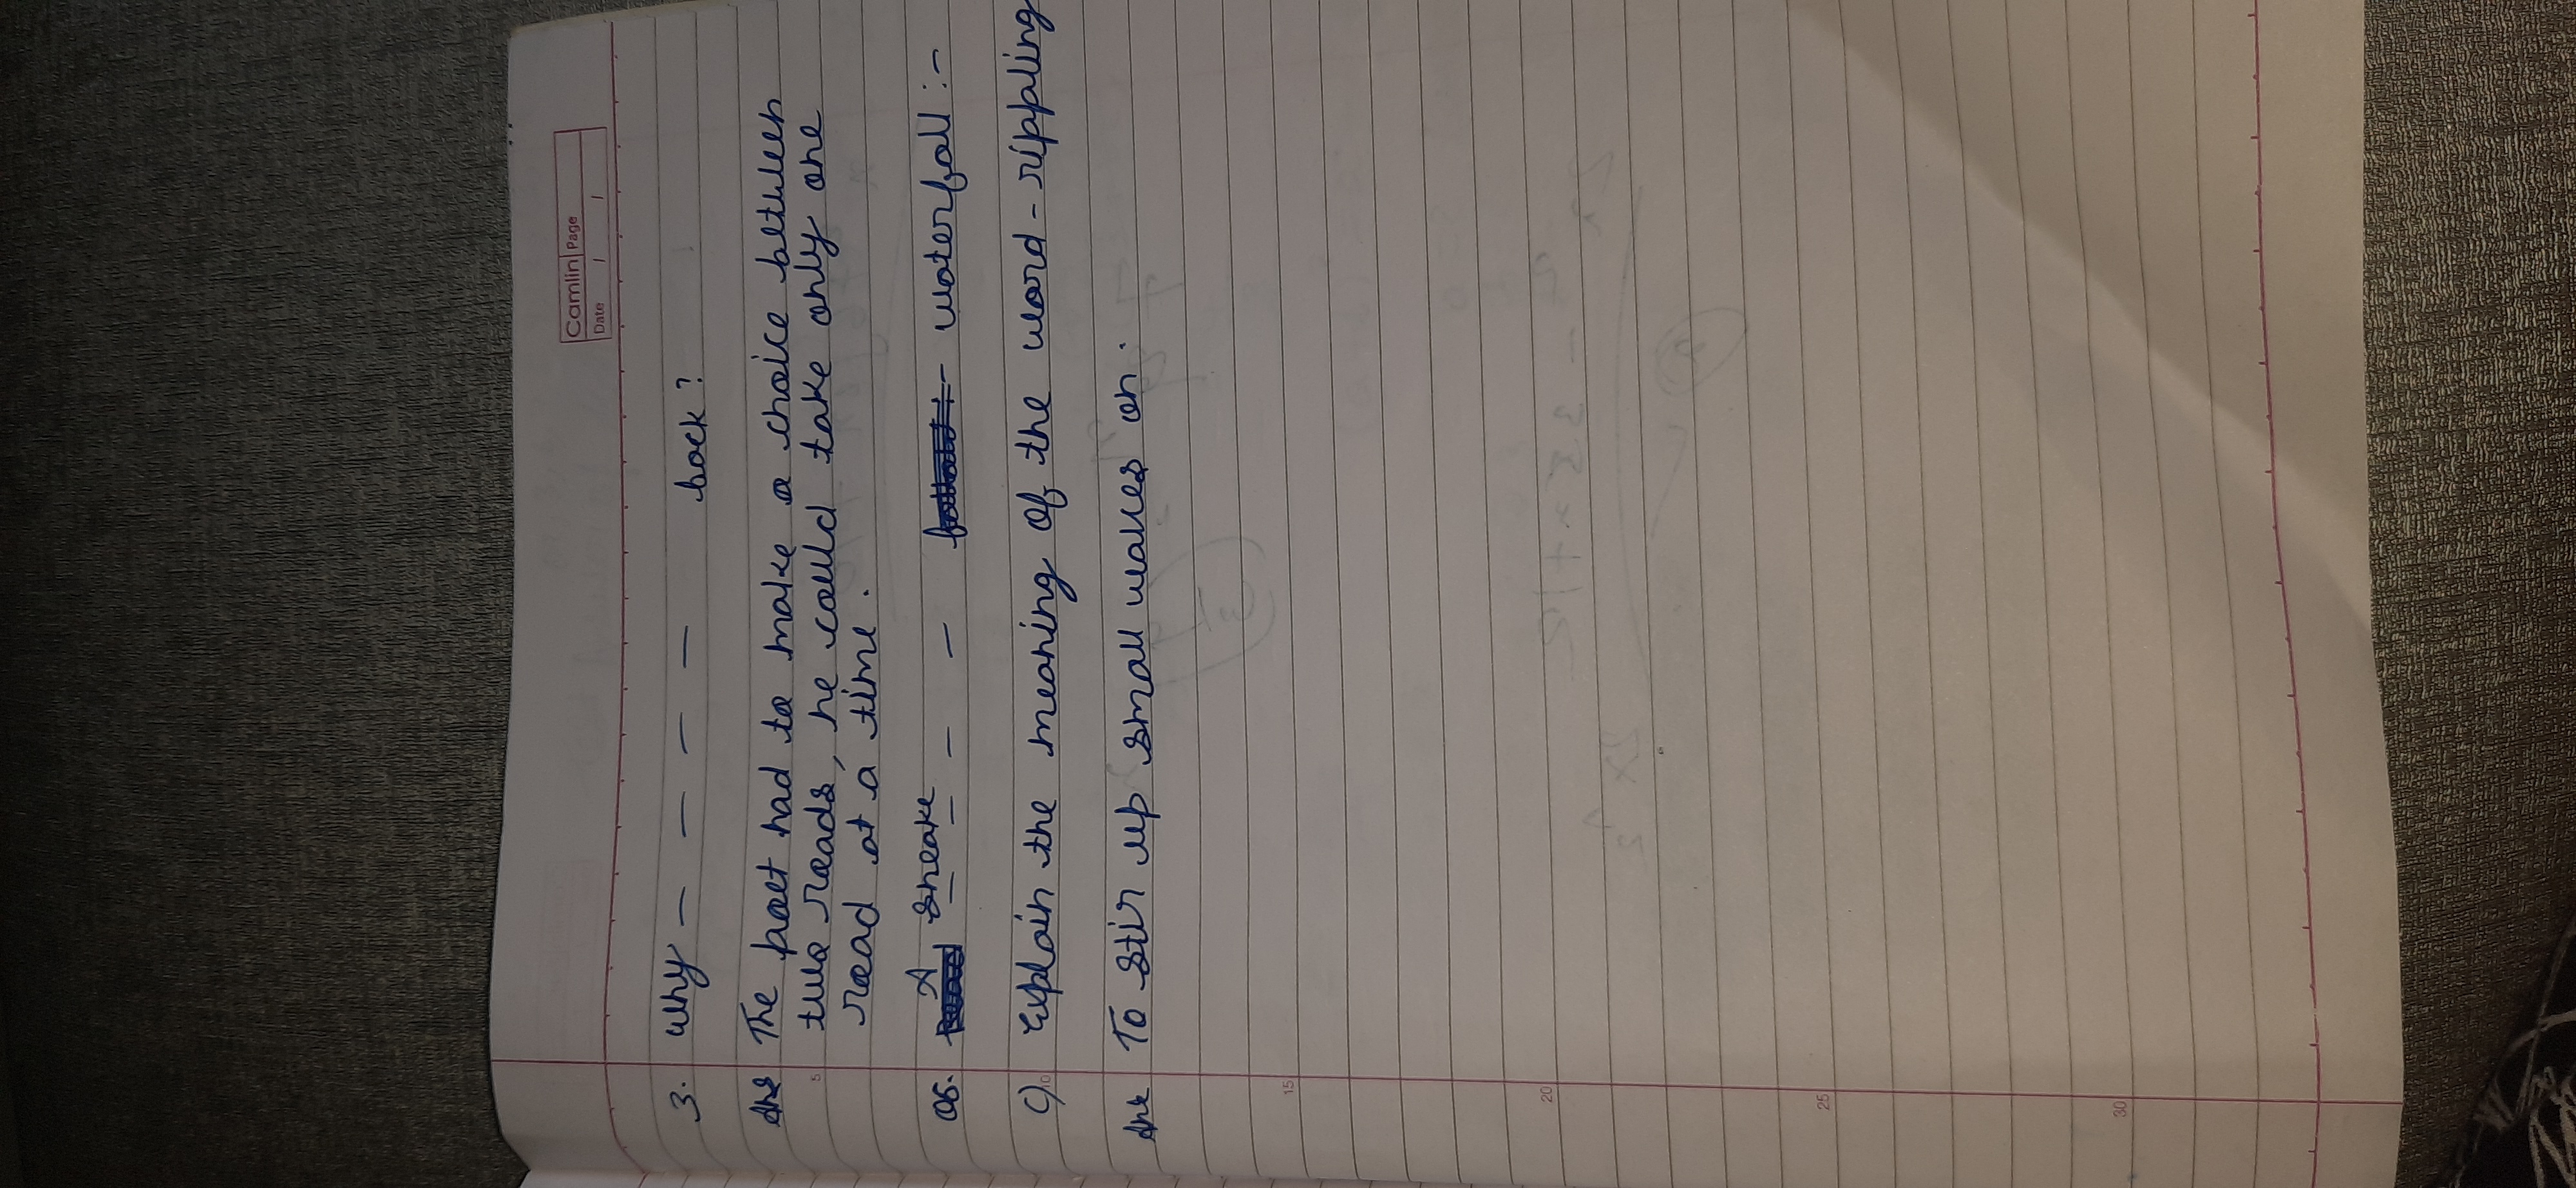 Camlin Page
Date / /
3. Why — — — — back ?
Ans The poet had to make a choice between
5 two roads, he could take only one
road at a time.
A sneake
Q6. — — — — waterfall :-
C) 10 Explain the meaning of the word - rippling
Ans To stir up small waves on.
15
20
2x² - 35x+12
2x^2
25
30